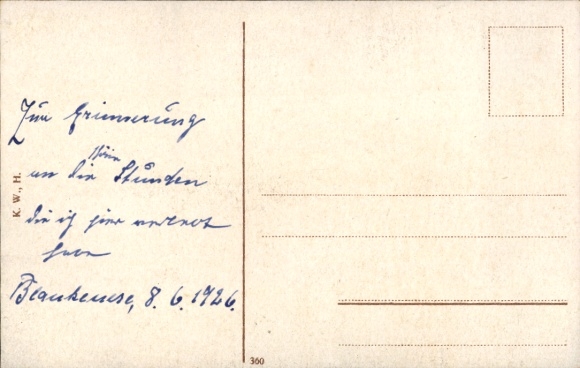 Zur Erinnerung
schönen
an die Stunden
die ich hier verlebt
habe
Blankenese, 8. 6. 1926.
K. W., H.
360